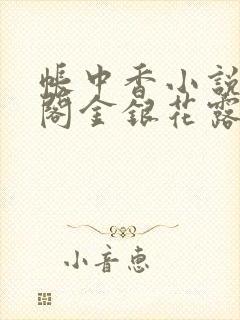 帐中香小說
閣金銀花露
小音惠